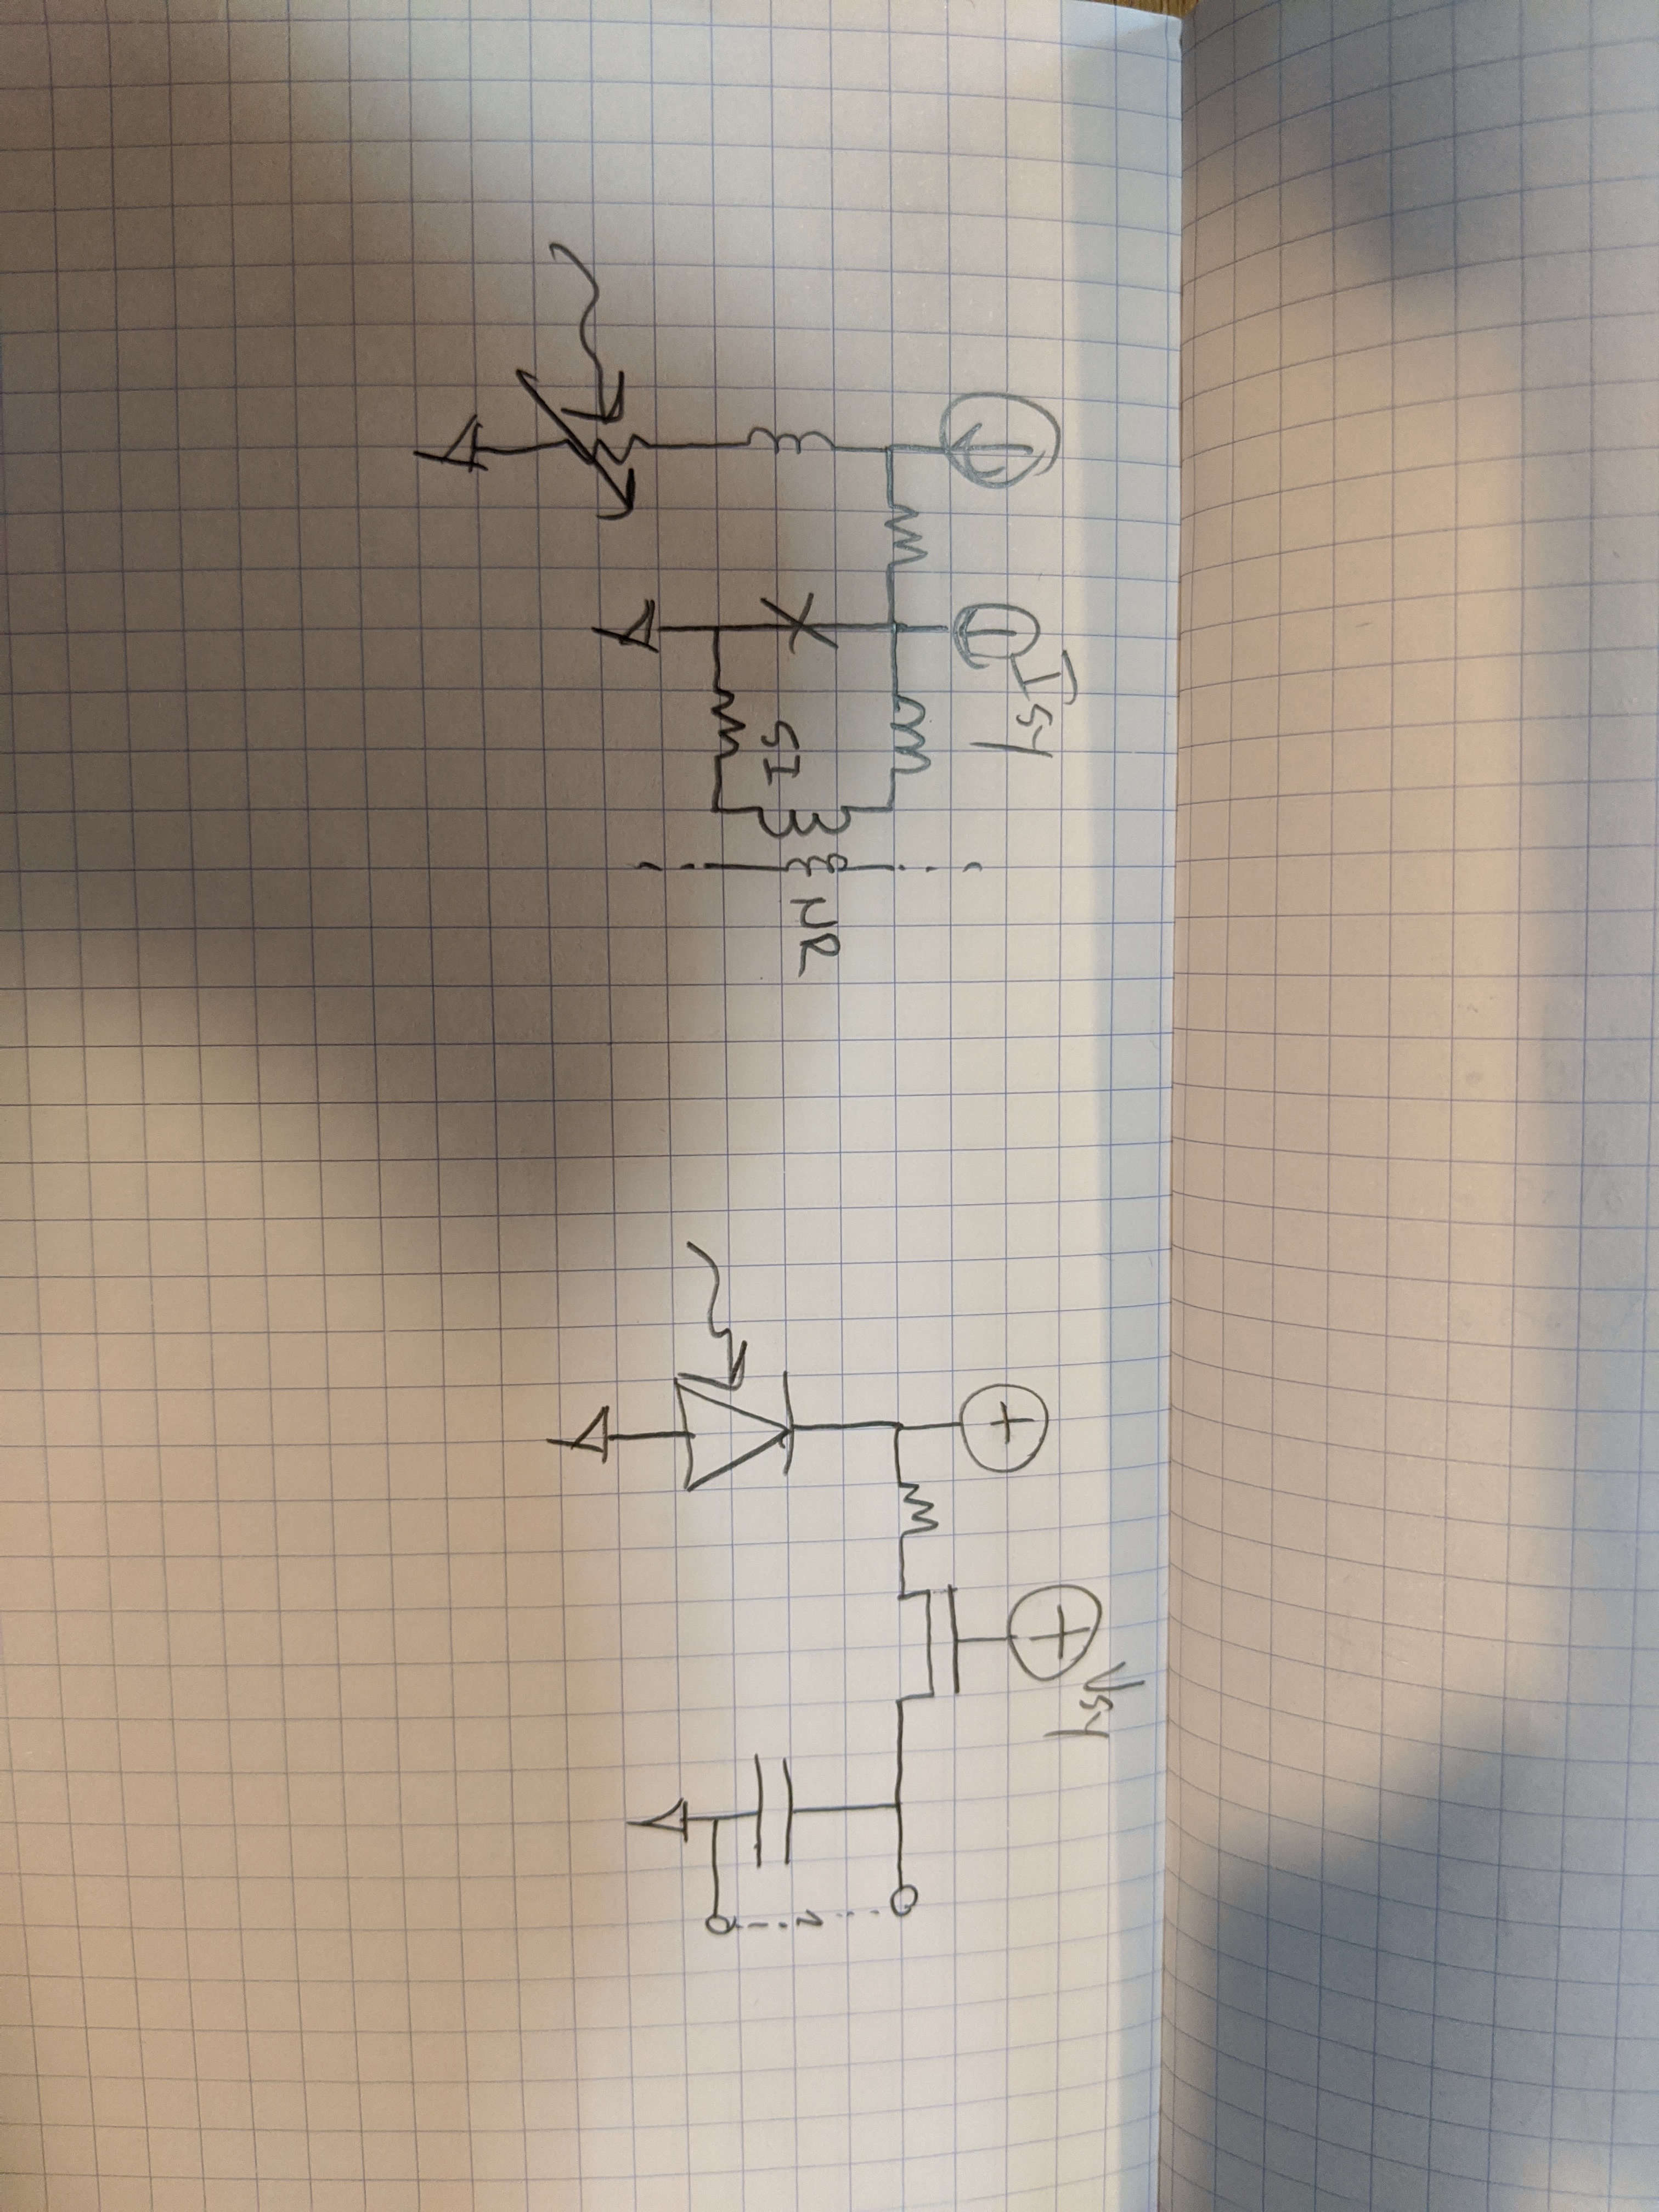 Isy
SI
NR
+
+
Vsy